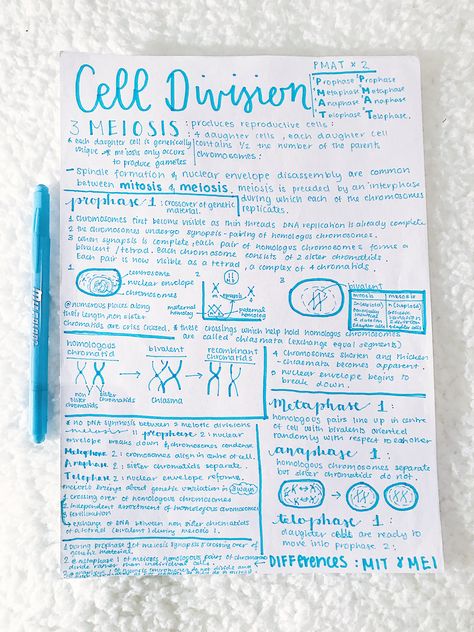 PMAT x 2
Cell Division
Prophase Prophase
Metaphase Metaphase
Anaphase Anaphase
Telophase Telophase.
3 MEIOSIS : produces reproductive cells :
: 4 daughter cells, each daughter cell
contains 1/2 the number of the parent
chromosomes.
& each daughter cell is genetically
unique. & meiosis only occurs
to produce gametes
- Spindle formation & nuclear envelope disassembly are common
between mitosis & meiosis. meiosis is preceded by an interphase
during which each of the chromosomes
replicates.
prophase 1 : crossover of genetic
material.
1 chromosomes first become visible as thin threads DNA replication is already complete
2 the chromosomes undergo synopsis - pairing of homologus chromosomes.
3 when synopsis is complete, each pair of homologus chromosomes forms a
bivalent / tetrad. Each chromosome consists of 2 sister chromatids.
Each pair is now visible as a tetrad, a complex of 4 chromatids.
1
centrosome
nuclear envelope
chromosomes
2
synapsis
maternal homolog
paternal homolog
3
bivalent
mitosis meiosis
@ numerous places along
their length, non sister
chromatids are criss crossed. & these crossings which help hold homologus chromosomes
are called chiasmata (exchange equal segments)
homologous
chromatid
bivalent
recombinant
chromatids
non sister
chromatids
sister
chromatids
Chiasma
4 chromosomes shorten and thicken
- chiasmata becomes apparent.
nuclear envelope begins to
break down.
& no DNA synthesis between 2 meiotic divisions
meiosis 11 prophase 2 : nuclear
envelope breaks down & chromosomes condense
Metaphase 2 : chromosomes align in centre of cell.
Anaphase 2 : sister chromatids separate.
Telophase 2 : nuclear envelope reforms.
meiosis brings about genetic variation in 3 ways
1 crossing over of homologous chromosomes
2 independent assortment of homologous chromosomes
3 fertilization
↳ exchange of DNA between non sister chromatids
of a tetrad (bivalent) during meiosis 1.
metaphase 1 :
homologous pairs line up in centre
of cell with bivalents oriented
randomly with respect to eachother
anaphase 1 :
homologous chromosomes separate
but sister chromatids do not.
telophase 1 :
daughter cells are ready to
move into prophase 2.
1 during prophase 1 of meiosis synapsis & crossing over of
genetic material.
2 @ metaphase 1 of meiosis, homologous pairs of chromosomes
divide rather than individual cells.
← DIFFERENCES : MIT & MEI